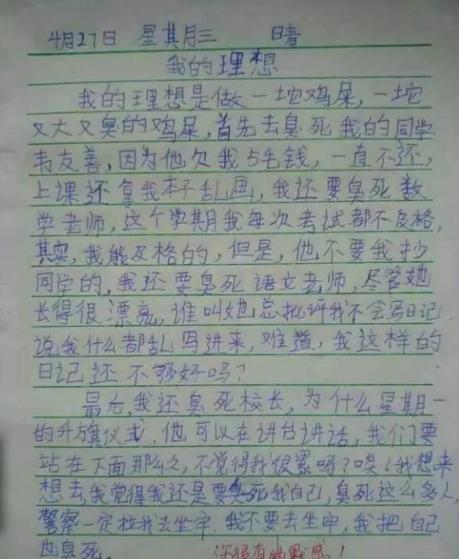 4月27日 星其月三 晴
我的理想
我的理想是做一坨鸡屎,一坨
又大又臭的鸡屎,首先去臭死我的同学
韦友善,因为他欠我5毛钱,一直不还,
上课还拿我本子乱画,我还要臭死数
学老师,这个学期我每次考试都不及格,
其实,我能及格的,但是,他不要我抄
同学的,我还要臭死语文老师,尽管她
长得很漂亮,谁叫她总批评我不会写日记
说我什么都乱写进来,难道,我这样的
日记还不够好吗?
最后,我还臭死校长,为什么星期一
的升旗仪式,他可以在讲台讲话,我们要
站在下面那么久,不觉得我很累吗?唉!我想来
想去,我觉得我还是要臭死我自己,臭死这么多人,
警察一定拉我去坐牢,我不要去坐牢,我把自己
也臭死。 你很有幽默感!